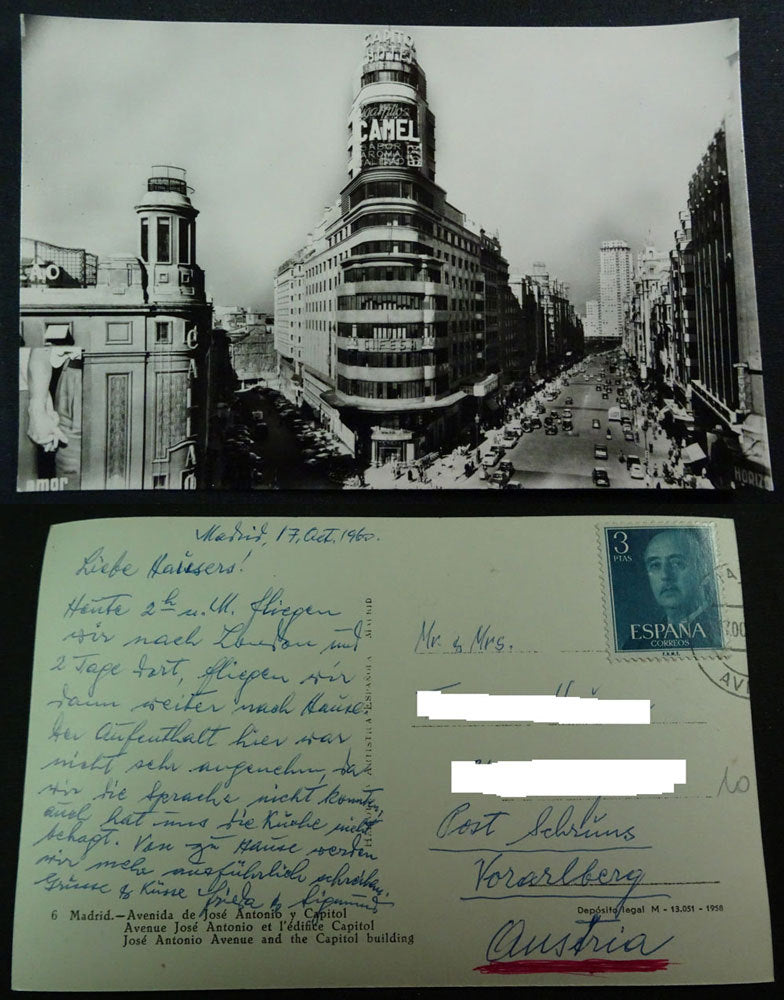 CAPITOL
HOTEL
Cigarrillos
CAMEL
SABOR
AROMA
CALIDAD
DIFESA
AO
CALLAO
amor
HORIZ
Madrid, 17. Oct. 1960.
Liebe Häusers!
Heute 2h n. M. fliegen
wir nach London und
2 Tage dort, fliegen wir
dann weiter nach Hause.
Der Aufenthalt hier war
nicht sehr angenehm, da
wir die Sprache nicht konnten,
auch hat uns die Küche nicht
behagt. Von zu Hause werden
wir mehr ausführlich schreiben.
Grüsse & Küsse Frieda & Sigmund
ARTISTICA ESPAÑOLA MADRID
6 Madrid.—Avenida de José Antonio y Capitol
Avenue José Antonio et l'édifice Capitol
José Antonio Avenue and the Capitol building
3
PTAS
ESPAÑA
CORREOS
F.N.M.T.
AV
Mr. & Mrs.
Post Schruns
Vorarlberg
Austria
10
Depósito legal M - 13.051 - 1958